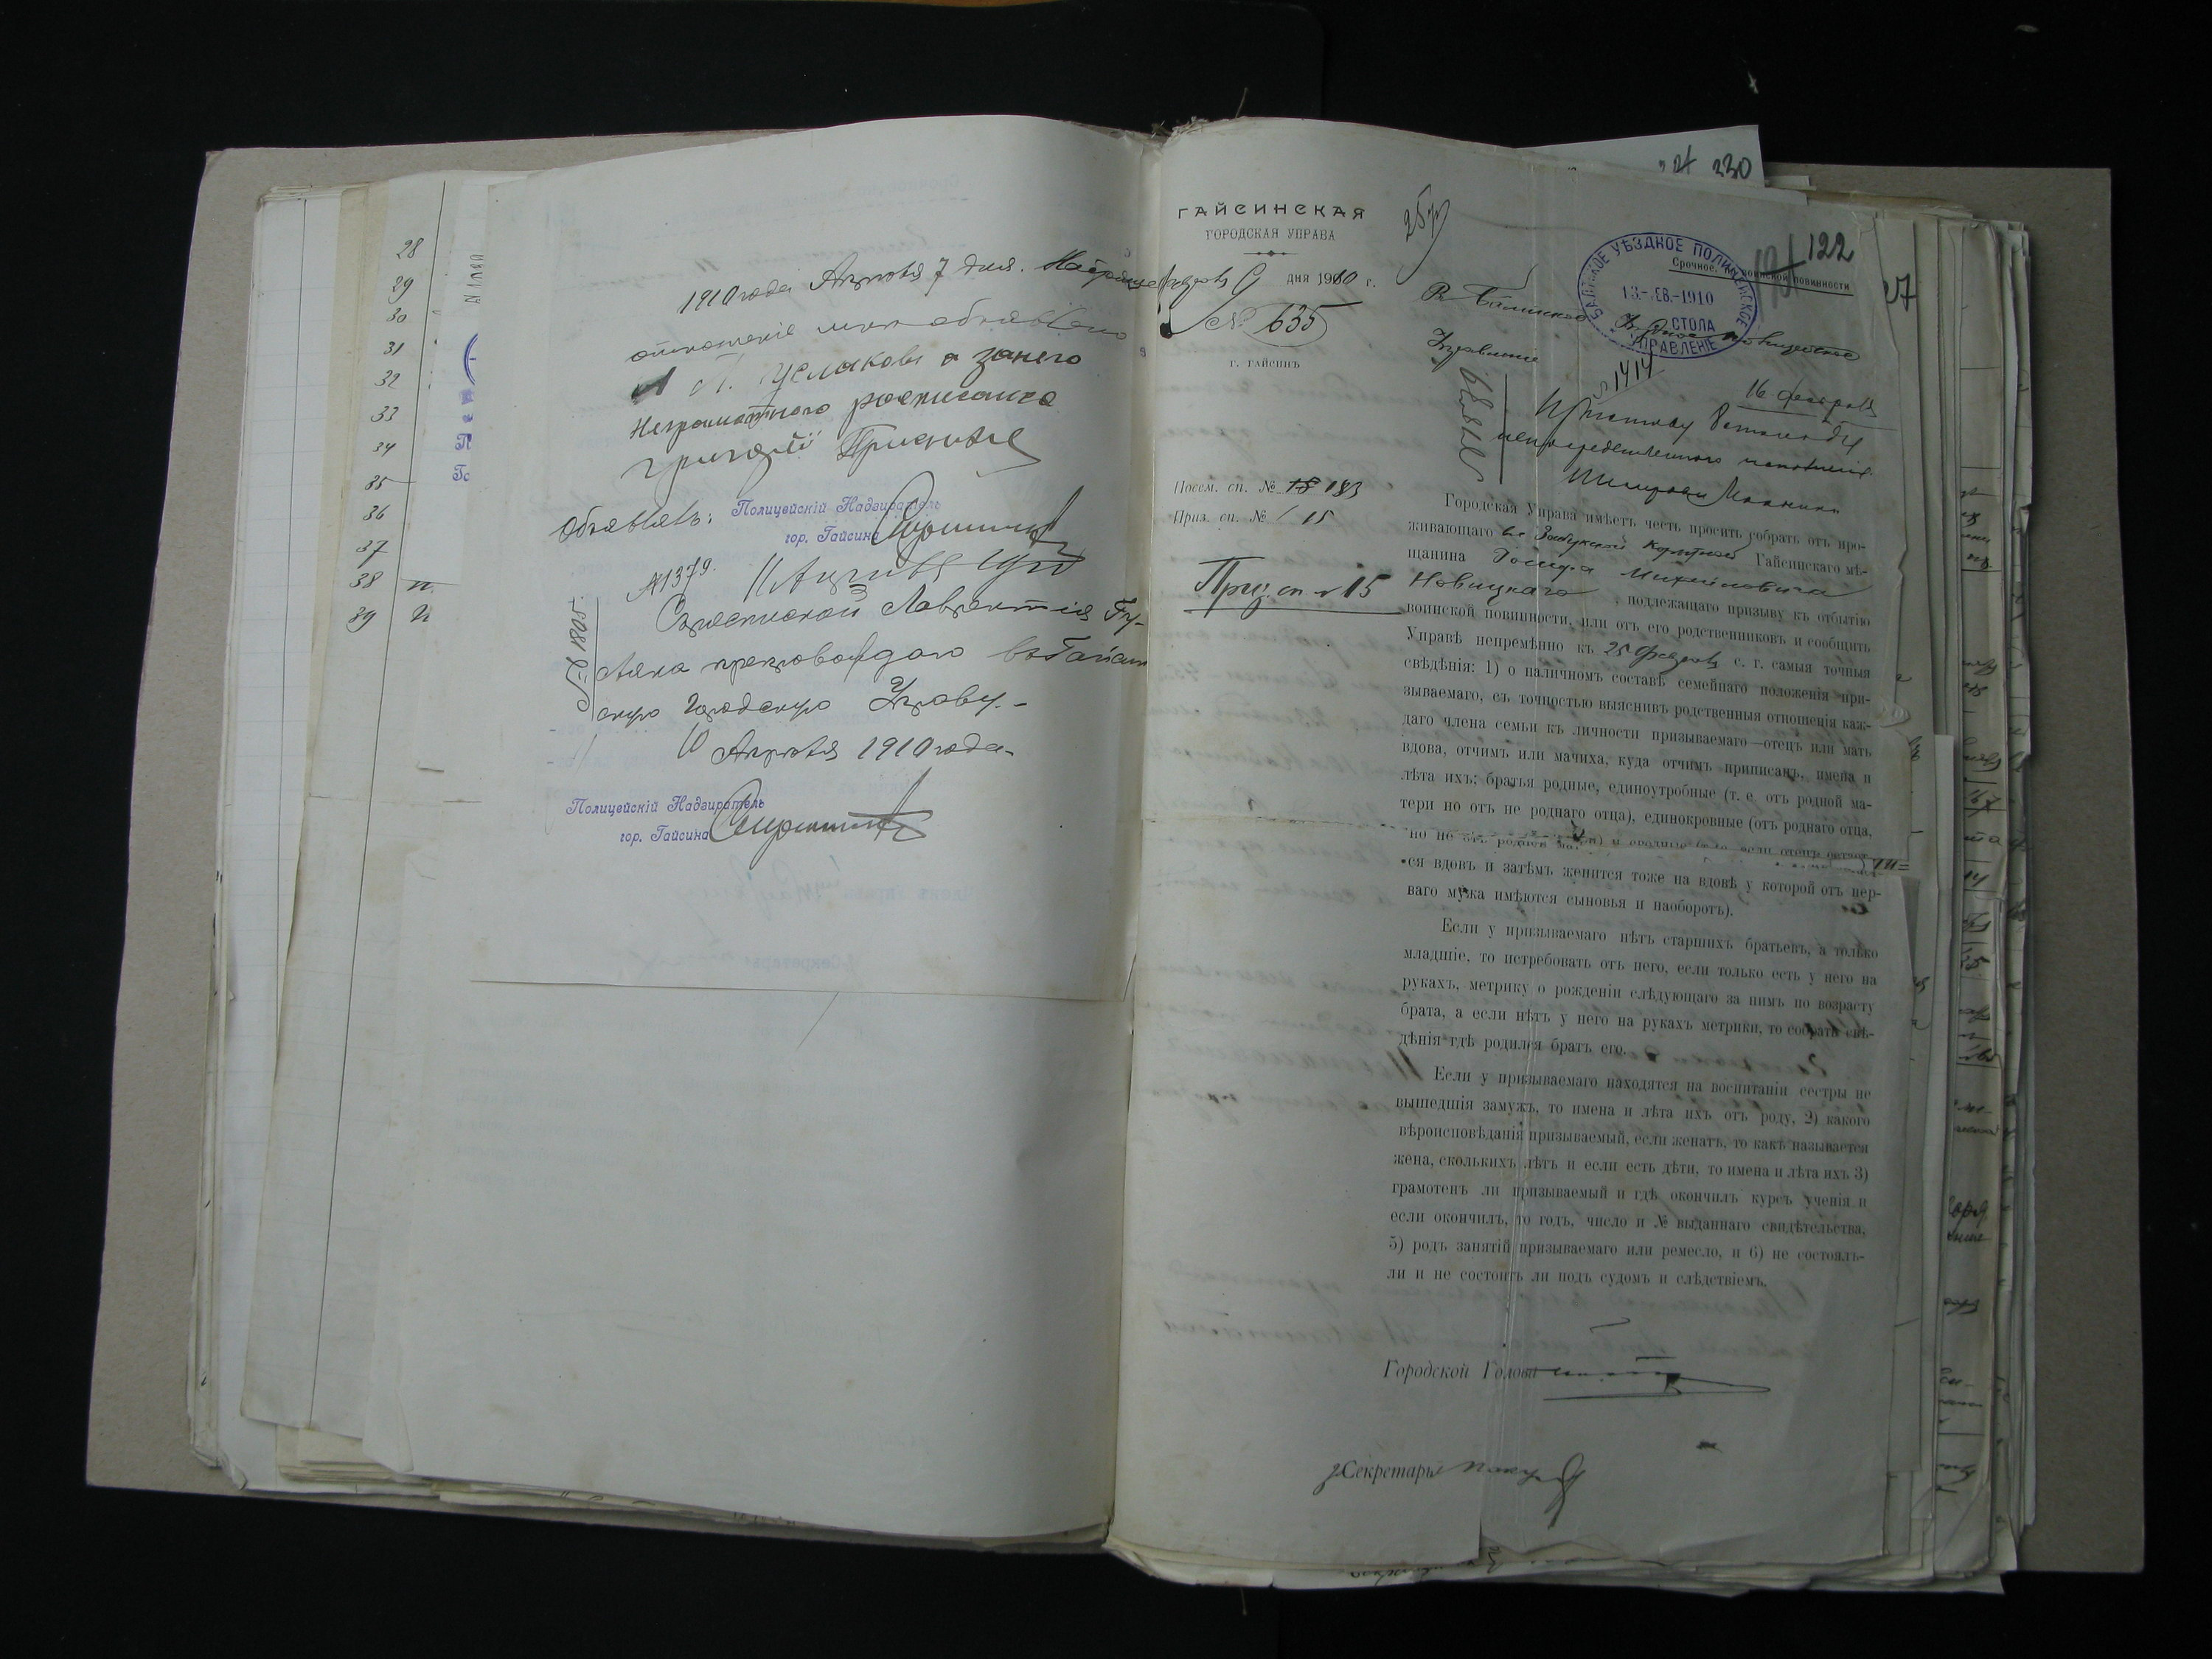 28
29
30
31
32
33
34
35
36
37
38
39
1910 года Апреля 7 дня.
отношеніе мнѣ объявлено
а за него
неграмотнаго росписался
Григорій
Объявилъ: Полицейскій Надзиратель
гор. Гайсина
№ 1379.
№ 1805.
Съ роспиской Лаврентія Гу-
ляка препровождаю въ Гайсин
скую Городскую Управу.-
10 Апреля 1910 года
Полицейскій Надзиратель
гор. Гайсина
230
ГАЙСИНСКАЯ
ГОРОДСКАЯ УПРАВА
Февраля 9 дня 1910 г.
№ 635
г. ГАЙСИНЪ
122
Срочное. воинской повинности
БАЛТСКОЕ УѢЗДНОЕ ПОЛИЦЕЙСКОЕ УПРАВЛЕНІЕ
13.-ФЕВ.-1910
СТОЛА
Въ Балтское Уѣздное Полицейское
Управленіе
№ 1414
16 Февраля
Приставу 8 стана для
непосредственнаго исполненія
Посем. сп. № 183
Приз. сп. № 15
Приз. сп. № 15
Городская Управа имѣетъ честь просить собрать отъ про-
живающаго Гайсинскаго мѣ-
щанина Іосифа Михайловича
Новицкаго, подлежащаго призыву къ отбытію
воинской повинности, или отъ его родственниковъ и сообщить
Управѣ непремѣнно къ 25 Февраля с. г. самыя точныя
свѣдѣнія: 1) о наличномъ составѣ семейнаго положенія при-
зываемаго, съ точностью выяснивъ родственныя отношенія каж-
даго члена семьи къ личности призываемаго—отецъ или мать
вдова, отчимъ или мачиха, куда отчимъ приписанъ, имена и
лѣта ихъ; братья родные, единоутробные (т. е. отъ родной ма-
тери но отъ не роднаго отца), единокровные (отъ роднаго отца,
но не отъ родной матери) и сродные
ся вдовъ и затѣмъ женится тоже на вдовѣ у которой отъ пер-
ваго мужа имѣются сыновья и наоборотъ).
Если у призываемаго нѣтъ старшихъ братьевъ, а только
младшіе, то истребовать отъ него, если только есть у него на
рукахъ, метрику о рожденіи слѣдующаго за нимъ по возрасту
брата, а если нѣтъ у него на рукахъ метрики, то собрать свѣ-
дѣнія гдѣ родился братъ его.
Если у призываемаго находятся на воспитаніи сестры не
вышедшія замужъ, то имена и лѣта ихъ отъ роду, 2) какого
вѣроисповѣданія призываемый, если женатъ, то какъ называется
жена, сколькихъ лѣтъ и если есть дѣти, то имена и лѣта ихъ 3)
грамотенъ ли призываемый и гдѣ окончилъ курсъ ученія и
если окончилъ, то годъ, число и № выданнаго свидѣтельства,
5) родъ занятій призываемаго или ремесло, и 6) не состоялъ-
ли и не состоитъ ли подъ судомъ и слѣдствіемъ.
Городской Голова
Секретарь